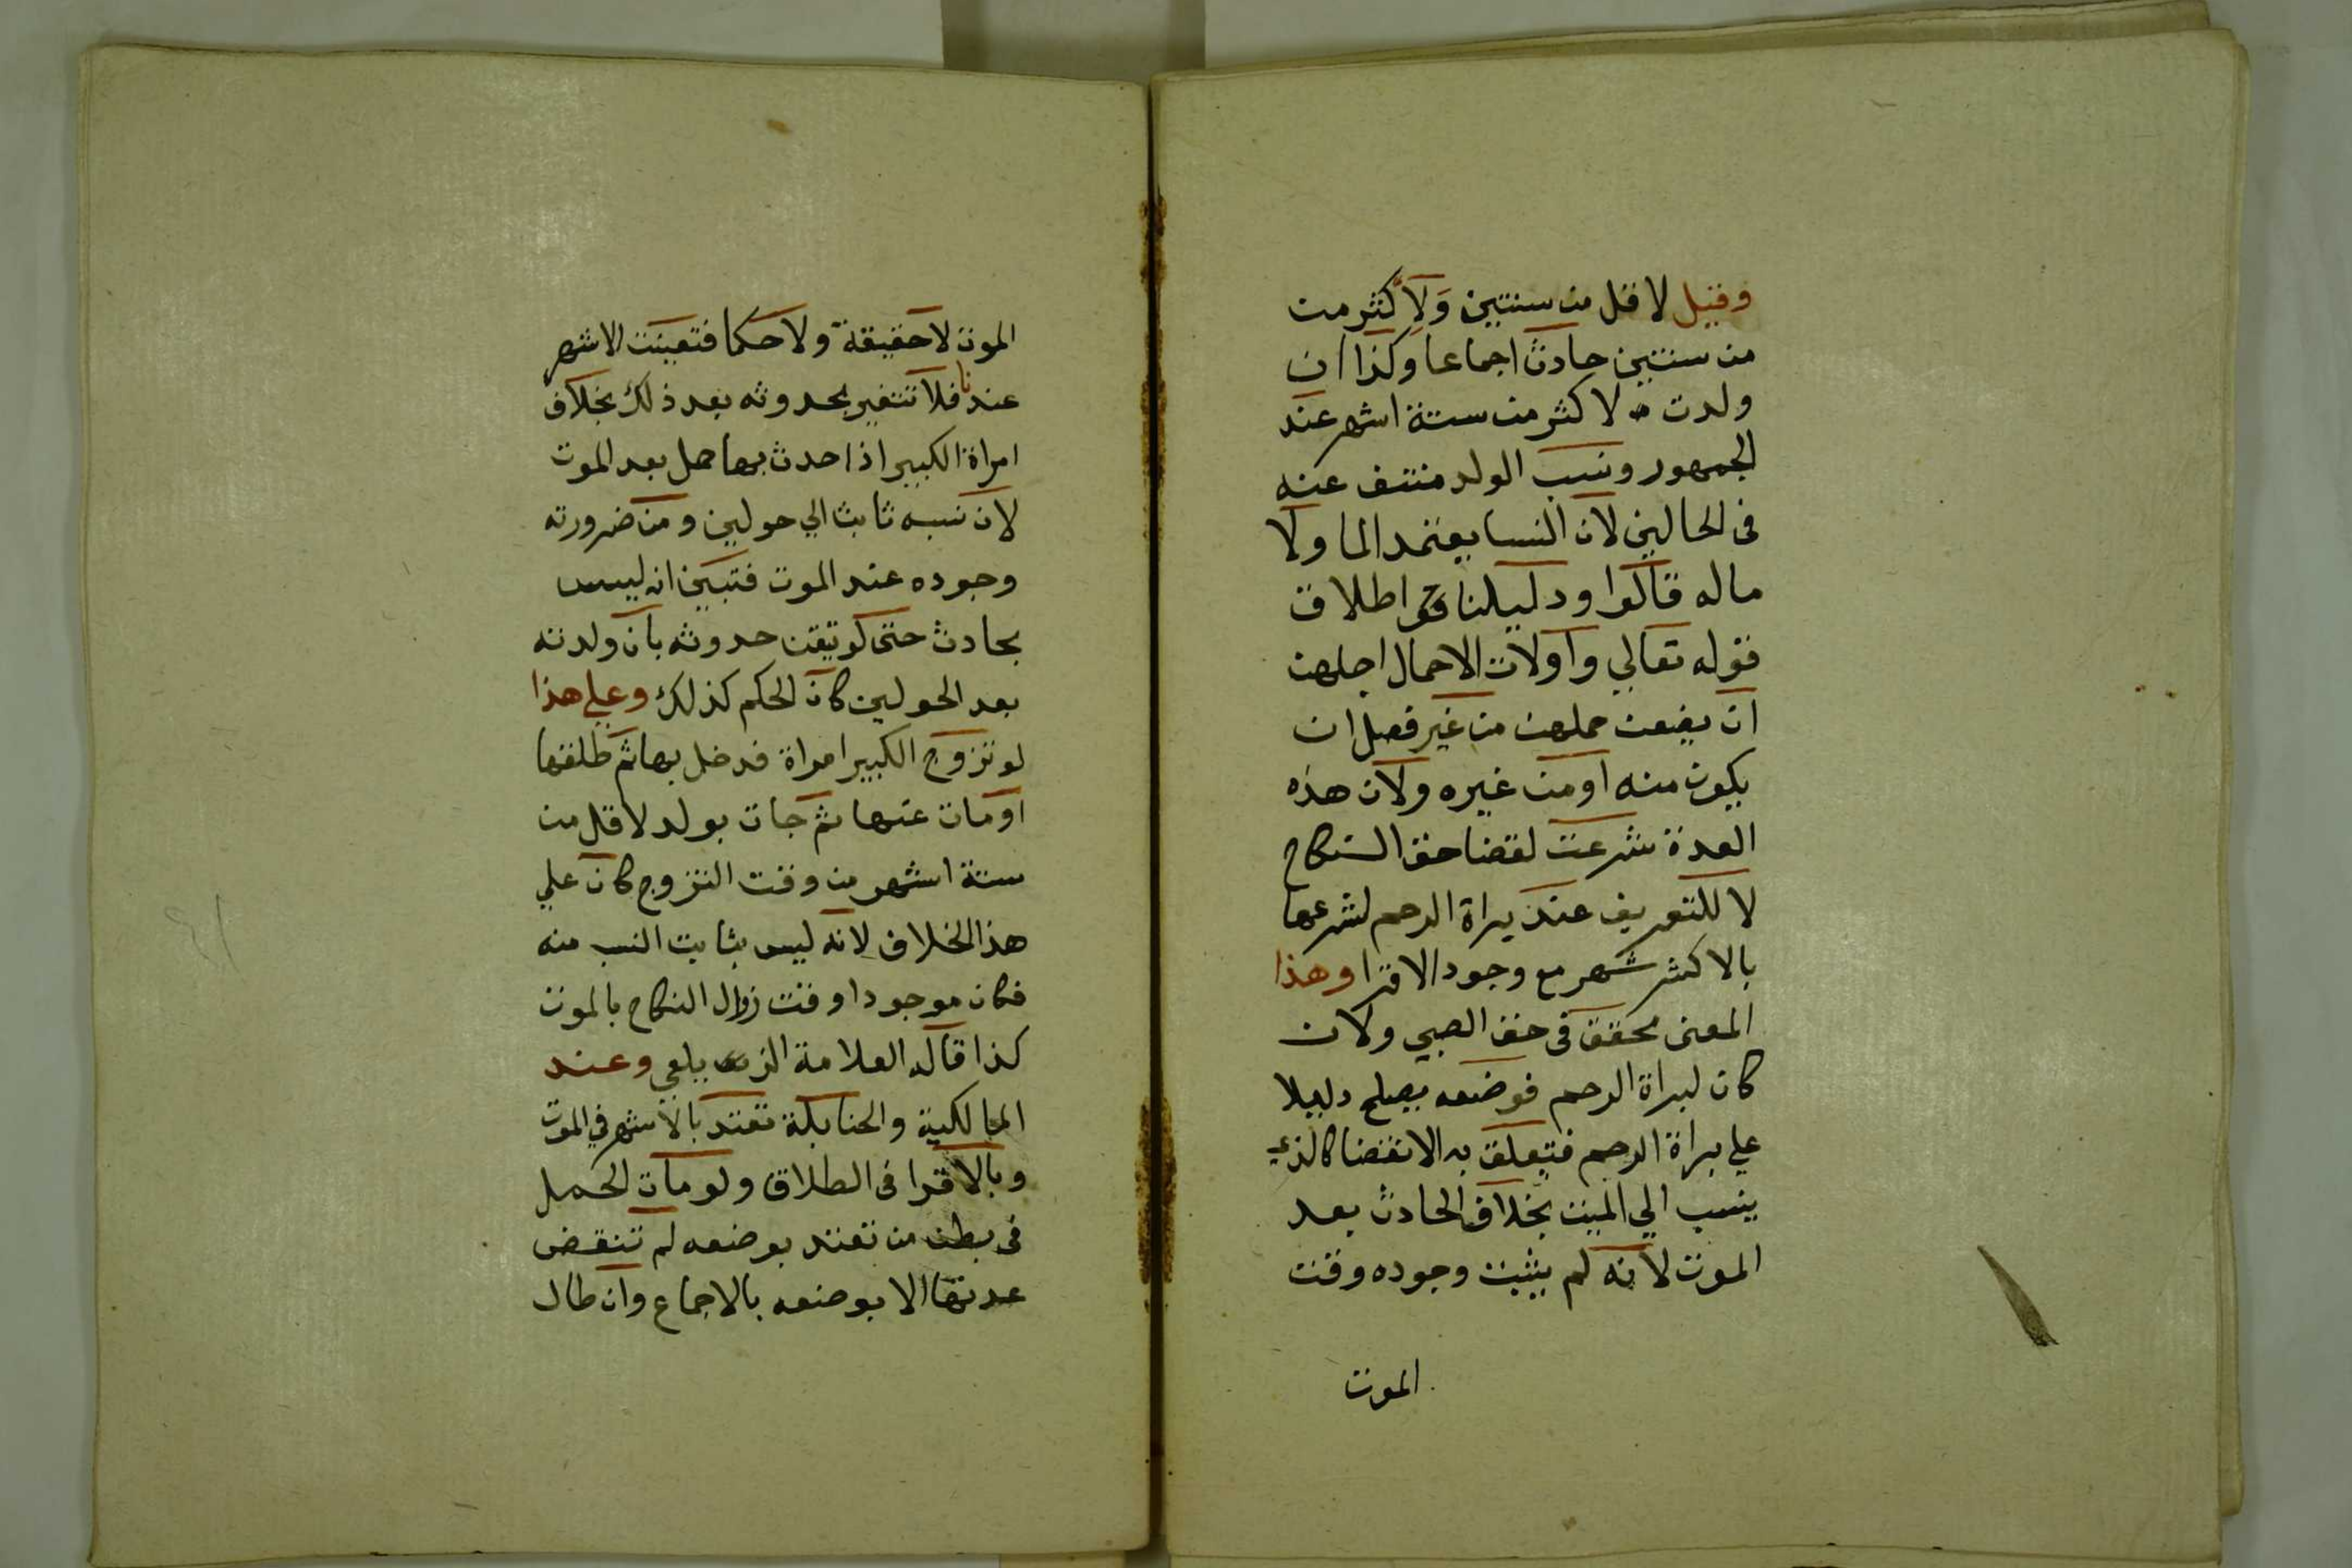 وقيل لاقل من سنتين ولاكثر من
من سنتين حادث اجماعا وكذا ان
ولدت لاكثر من ستة اشهر عند
الجمهور ونسب الولد منتف عنه
فى الحالين لان النسا يعتمد الما ولا
ماله قالوا ودليلنا اطلاق
قوله تعالي واولات الاحمال اجلهن
ان يضعن حملهن من غير فصل ان
يكون منه او من غيره ولان هذه
العدة شرعت لقضا حق النكاح
لا للتعريف عند براة الرحم لشرعها
بالاكثر شهر مع وجود الاقرا وهذا
المعنى محقق فى حق الصبي ولان
كان لبراة الرحم فوضعه يصلح دليلا
علي براة الرحم فتعلق به الانقضا كالذي
ينسب الي الميت بخلاف الحادث بعد
الموت لانه لم يثبت وجوده وقت
الموت
الموت لا حقيقة ولا حكما فتعينت الاشهر
عندنا فلا تتغير بحدوثه بعد ذلك بخلاف
امراة الكبير اذا حدث بها حمل بعد الموت
لان نسبه ثابت الي حولين ومن ضرورته
وجوده عند الموت فتبين انه ليس
بحادث حتى لو تيقن حدوثه بان ولدته
بعد الحولين كان الحكم كذلك وعلي هذا
لو تزوج الكبير امراة فدخل بها ثم طلقها
او مات عنها ثم جات بولد لاقل من
ستة اشهر من وقت التزوج كان علي
هذا الخلاف لانه ليس بثابت النسب منه
فكان موجودا وقت زوال النكاح بالموت
كذا قاله العلامة الزيلعي وعند
المالكية والحنابلة تعتد بالاشهر في الموت
وبالاقرا فى الطلاق ولو مات الحمل
فى بطن من تعتد بوضعه لم تنقض
عدتها الا بوضعه بالاجماع وان طال